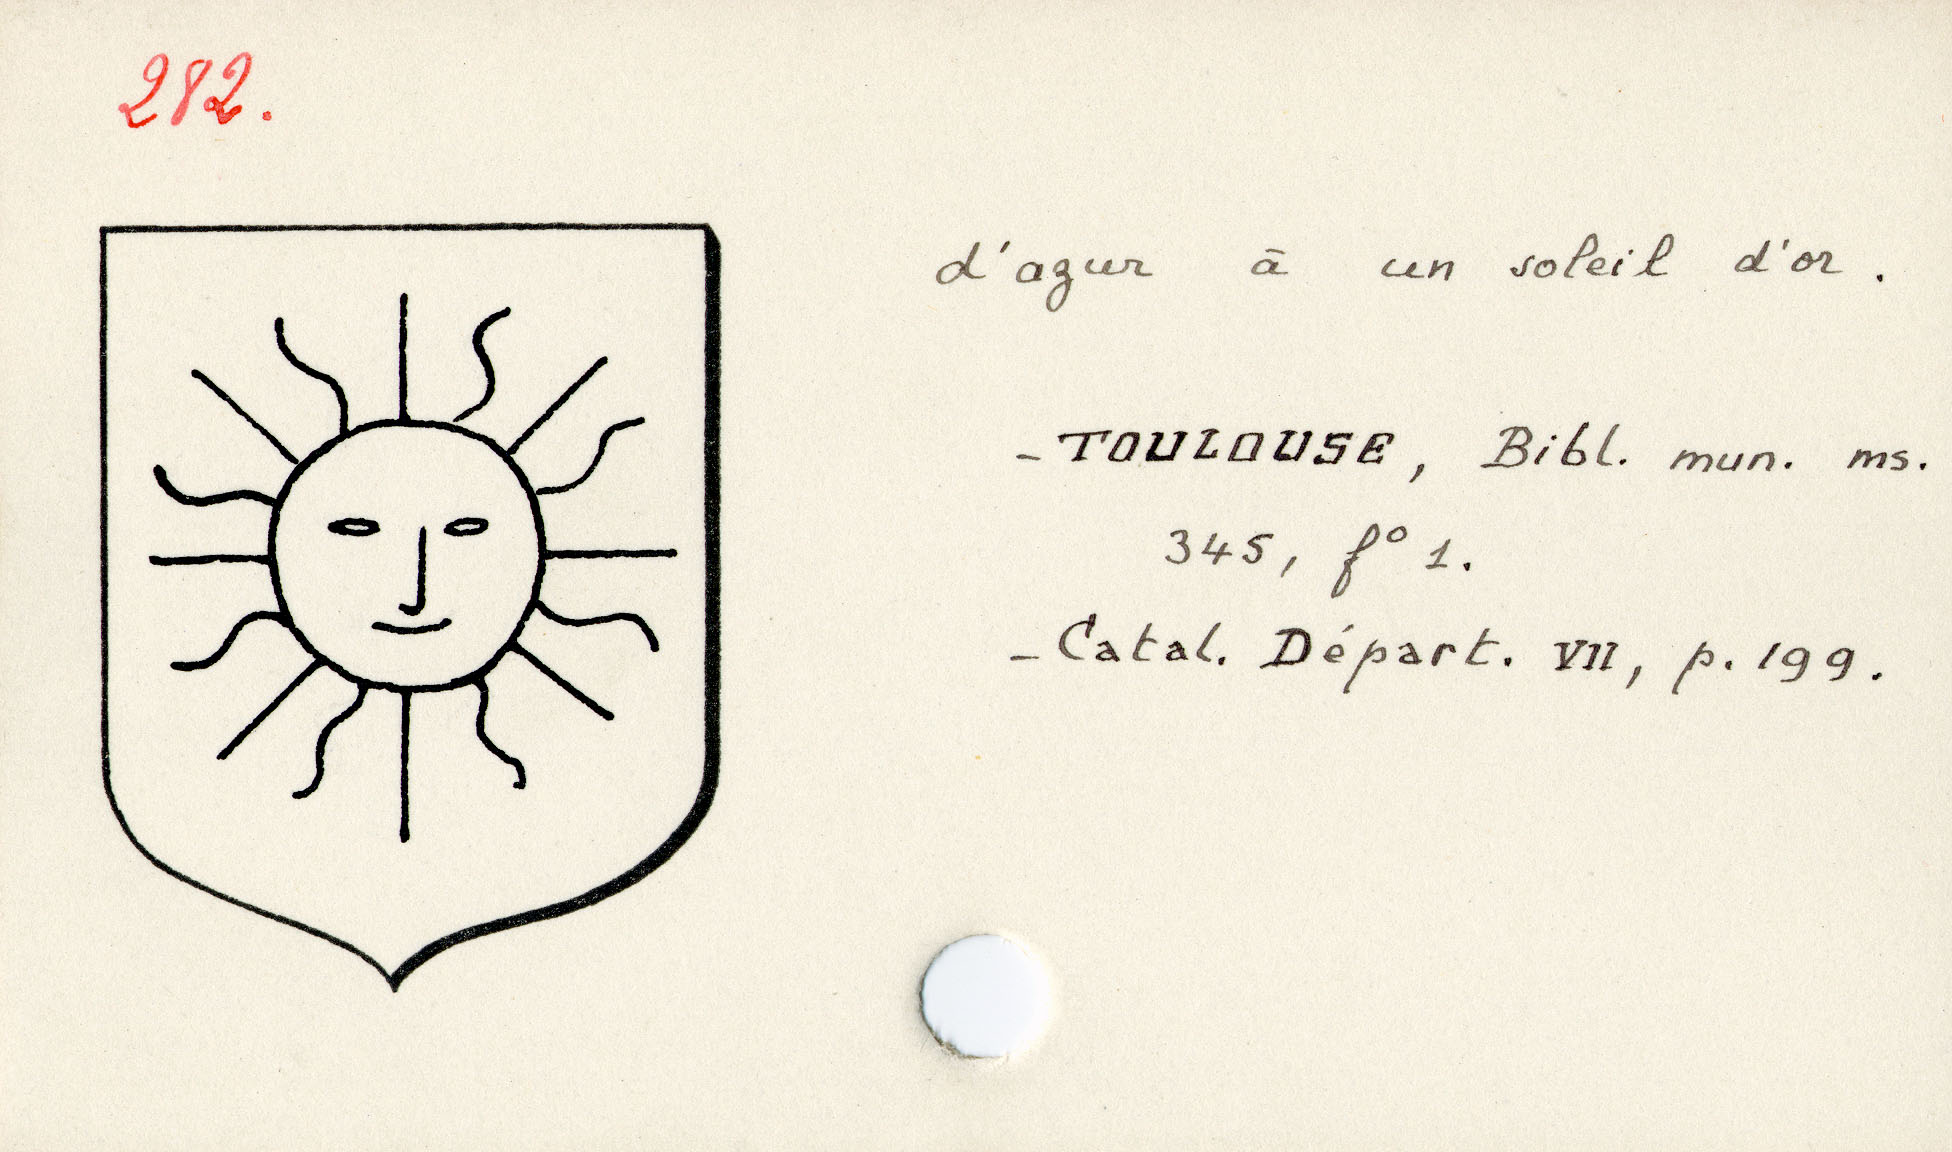 282.
d'azur à un soleil d'or.
- TOULOUSE, Bibl. mun. ms.
345, f° 1.
- Catal. Départ. VII, p. 199.